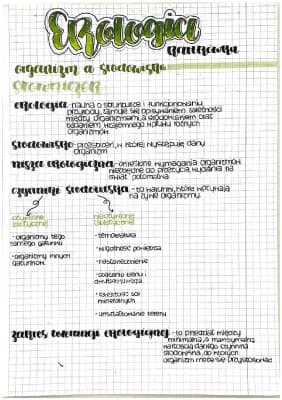 Ekologia
Kartkówka
organizm a środowisko
Słowniczek
ekologia - nauka o strukturze i funkcjonowaniu
przyrody, zajmuje się opisywaniem zależności
między organizmami a środowiskiem oraz
badaniem wzajemnego wpływu różnych
organizmów.
środowisko - przestrzeń, w której występuje dany
organizm
nisza ekologiczna - określone wymagania organizmów
niezbędne do przeżycia, wydania na
świat potomstwa
czynniki środowiska - to warunki, które wpływają
na życie organizmu.
czynniki nieożywione
biotyczne abiotyczne
- organizmy tego - temperatura
samego gatunku
- wilgotność powietrza
- organizmy innych
gatunków. - nasłonecznienie
- stężenie tlenu i
- zawartość soli
mineralnych
- ukształtowanie terenu
zakres tolerancji ekologicznej - to przedział między
minimalną, a maksymalną
wartością danego czynnika
środowiska, do których
organizm może się przystosować